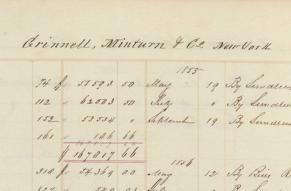 Grinnell, Minturn & Co. New York
1855
74 " 51593 50 May 19 By Sundries
112 " 62803 50 July " By Sundries
152 " 52534 " September 19 By Sundries
161 " 106 66
$ 167017 66
1856
310 " 54369 00 May 12 By Bills